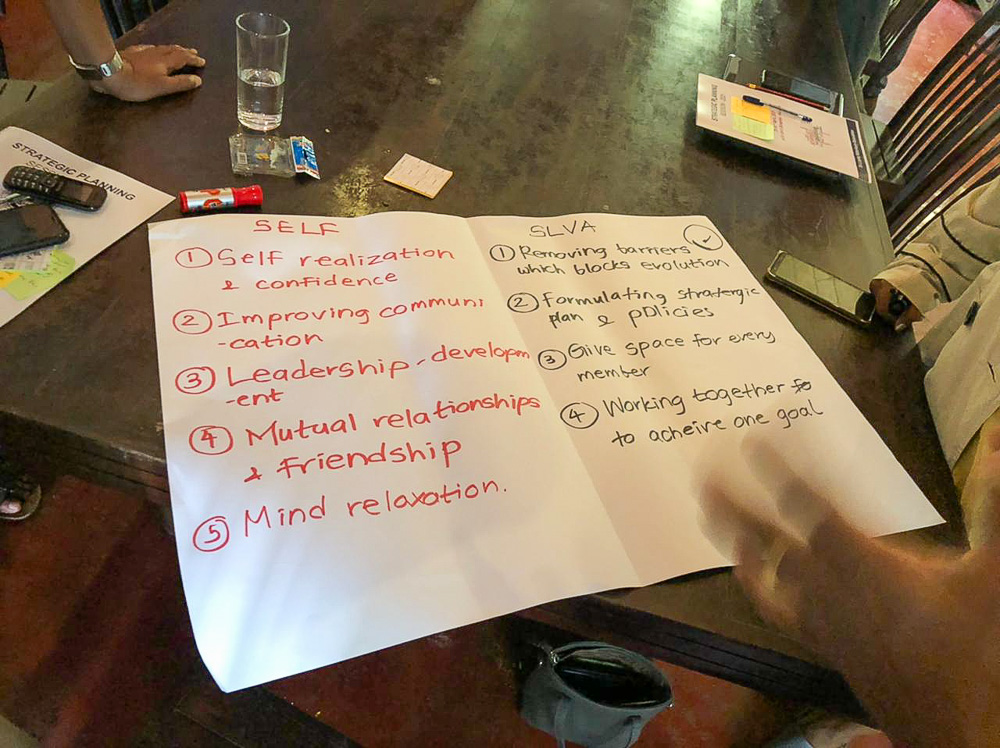 STRATEGIC PLANNING
SELF
① Self realization
& confidence
② Improving communi
-cation
③ Leadership-developm
-ent
④ Mutual relationships
& friendship
⑤ Mind relaxation.
SLVA
① Removing barriers
which blocks evolution
② Formulating stratergic
plan & pDlicies
③ Give space for every
member
④ Working together fo
to acheive one goal
STRATEGIC PLANNING